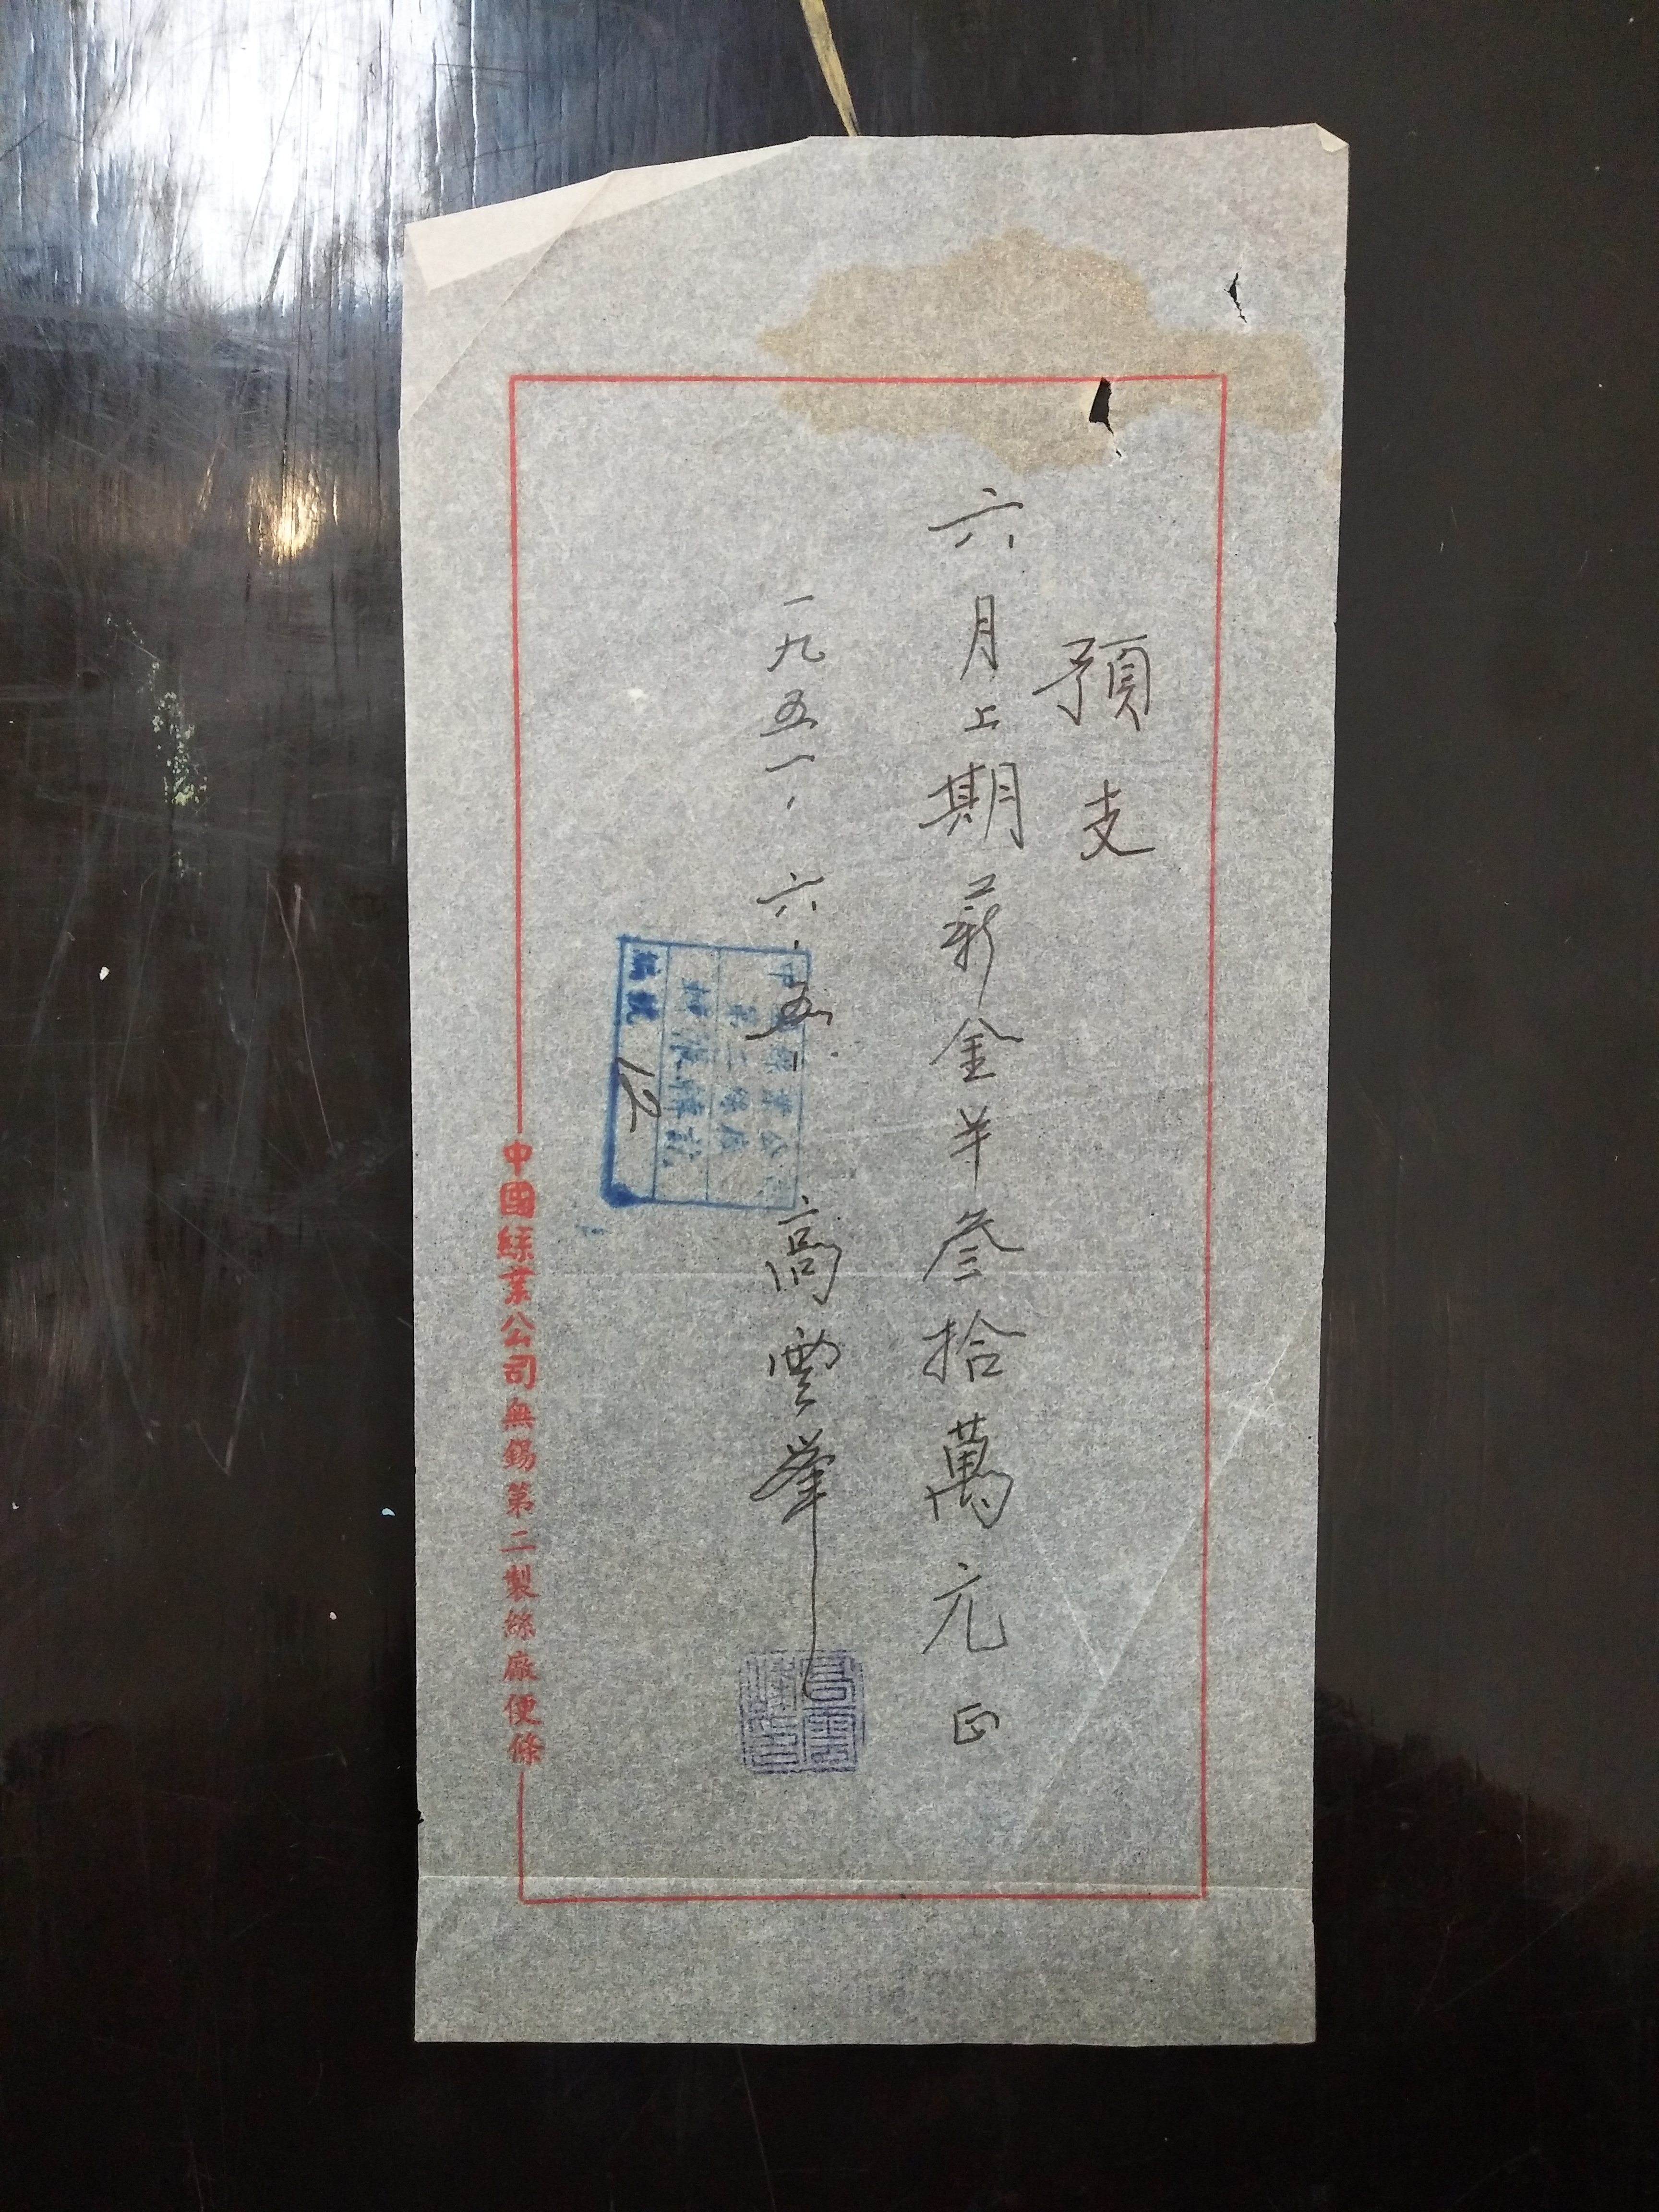 預支
六月上期薪金羊叁拾萬元正
一九五一、六、五、 高雲峯
編號 12
中國絲業公司無錫第二製絲廠便條